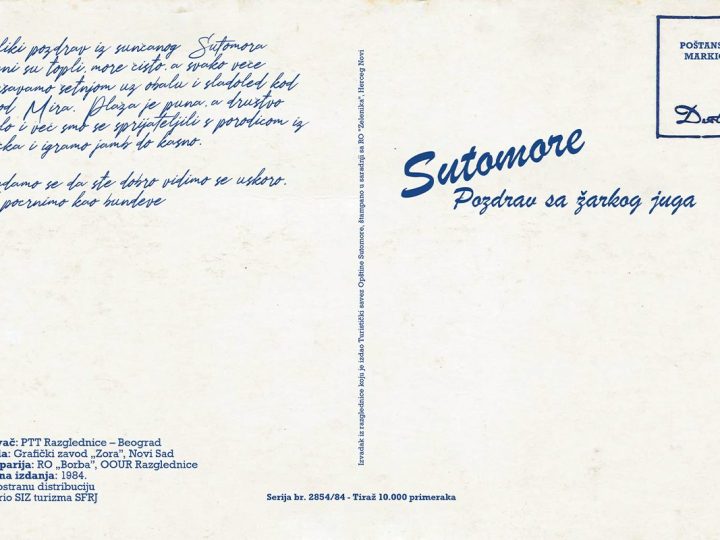 liki pozdrav iz sunčanog Sutomora
ni su topli, more čisto, a svako veče
savamo šetnjom uz obalu i sladoled kod
od Mira. Plaža je puna, a društvo
lo i već smo se sprijateljili s porodicom iz
čka i igramo jamb do kasno.
damo se da ste dobro vidimo se uskoro.
pocrnimo kao bundeve
POŠTANS
MARKIC
Sutomore
Pozdrav sa žarkog juga
Izvadak iz razglednice koju je izdao Turistički savez Opštine Sutomore, štampano u saradnji sa RO "Zelenika", Herceg Novi
vač: PTT Razglednice – Beograd
a: Grafički zavod „Zora", Novi Sad
parija: RO „Borba", OOUR Razglednice
na izdanja: 1984.
ostranu distribuciju
rio SIZ turizma SFRJ
Serija br. 2854/84 - Tiraž 10.000 primeraka